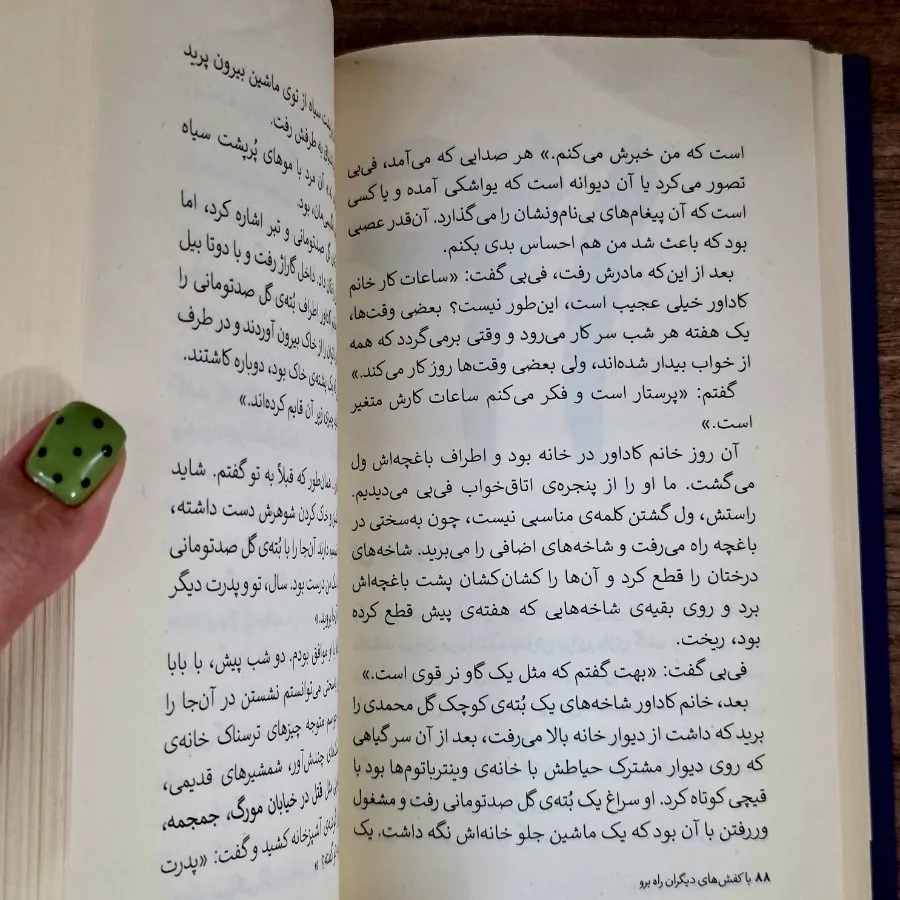 است که من خبرش می‌کنم.» هر صدایی که می‌آمد، فی‌بی
تصور می‌کرد یا آن دیوانه است که یواشکی آمده و یا کسی
است که آن پیغام‌های بی‌نام‌ونشان را می‌گذارد. آن‌قدر عصبی
بود که باعث شد من هم احساس بدی بکنم.
بعد از این‌که مادرش رفت، فی‌بی گفت: «ساعات کار خانم
کاداور خیلی عجیب است، این‌طور نیست؟ بعضی وقت‌ها،
یک هفته هر شب سر کار می‌رود و وقتی برمی‌گردد که همه
از خواب بیدار شده‌اند، ولی بعضی وقت‌ها روز کار می‌کند.»
گفتم: «پرستار است و فکر می‌کنم ساعات کارش متغیر
است.»
آن روز خانم کاداور در خانه بود و اطراف باغچه‌اش ول
می‌گشت. ما او را از پنجره‌ی اتاق‌خواب فی‌بی می‌دیدیم.
راستش، ول گشتن کلمه‌ی مناسبی نیست، چون به‌سختی در
باغچه راه می‌رفت و شاخه‌های اضافی را می‌برید. شاخه‌های
درختان را قطع کرد و آن‌ها را کشان‌کشان پشت باغچه‌اش
برد و روی بقیه‌ی شاخه‌هایی که هفته‌ی پیش قطع کرده
بود، ریخت.
فی‌بی گفت: «بهت گفتم که مثل یک گاو نر قوی است.»
بعد، خانم کاداور شاخه‌های یک بُته‌ی کوچک گل محمدی را
برید که داشت از دیوار خانه بالا می‌رفت، بعد از آن سر گیاهی
که روی دیوار مشترک حیاطش با خانه‌ی وینترباتوم‌ها بود با
قیچی کوتاه کرد. او سراغ یک بُته‌ی گل صدتومانی رفت و مشغول
وررفتن با آن بود که یک ماشین جلو خانه‌اش نگه داشت. یک
۸۸ با کفش‌های دیگران راه برو
سیاه از توی ماشین بیرون پرید
به طرفش رفت.
آن مرد با موهای پُرپشت سیاه
بود.
گل صدتومانی و تبر اشاره کرد، اما
داخل گاراژ رفت و با دوتا بیل
کاداور اطراف بُته‌ی گل صدتومانی را
از خاک بیرون آوردند و در طرف
پشته‌ی خاک بود، دوباره کاشتند.
چیزی زیر آن قایم کرده‌اند.»
همان‌طور که قبلاً به تو گفتم. شاید
خاک کردن شوهرش دست داشته،
آن‌جا را با بُته‌ی گل صدتومانی
درست بود. سال، تو و پدرت دیگر
بروید.»
موافق بودم. دو شب پیش، با بابا
می‌توانستم نشستن در آن‌جا را
متوجه چیزهای ترسناک خانه‌ی
چندش‌آور، شمشیرهای قدیمی،
قتل در خیابان مورگ، جمجمه،
آشپزخانه کشید و گفت: «پدرت